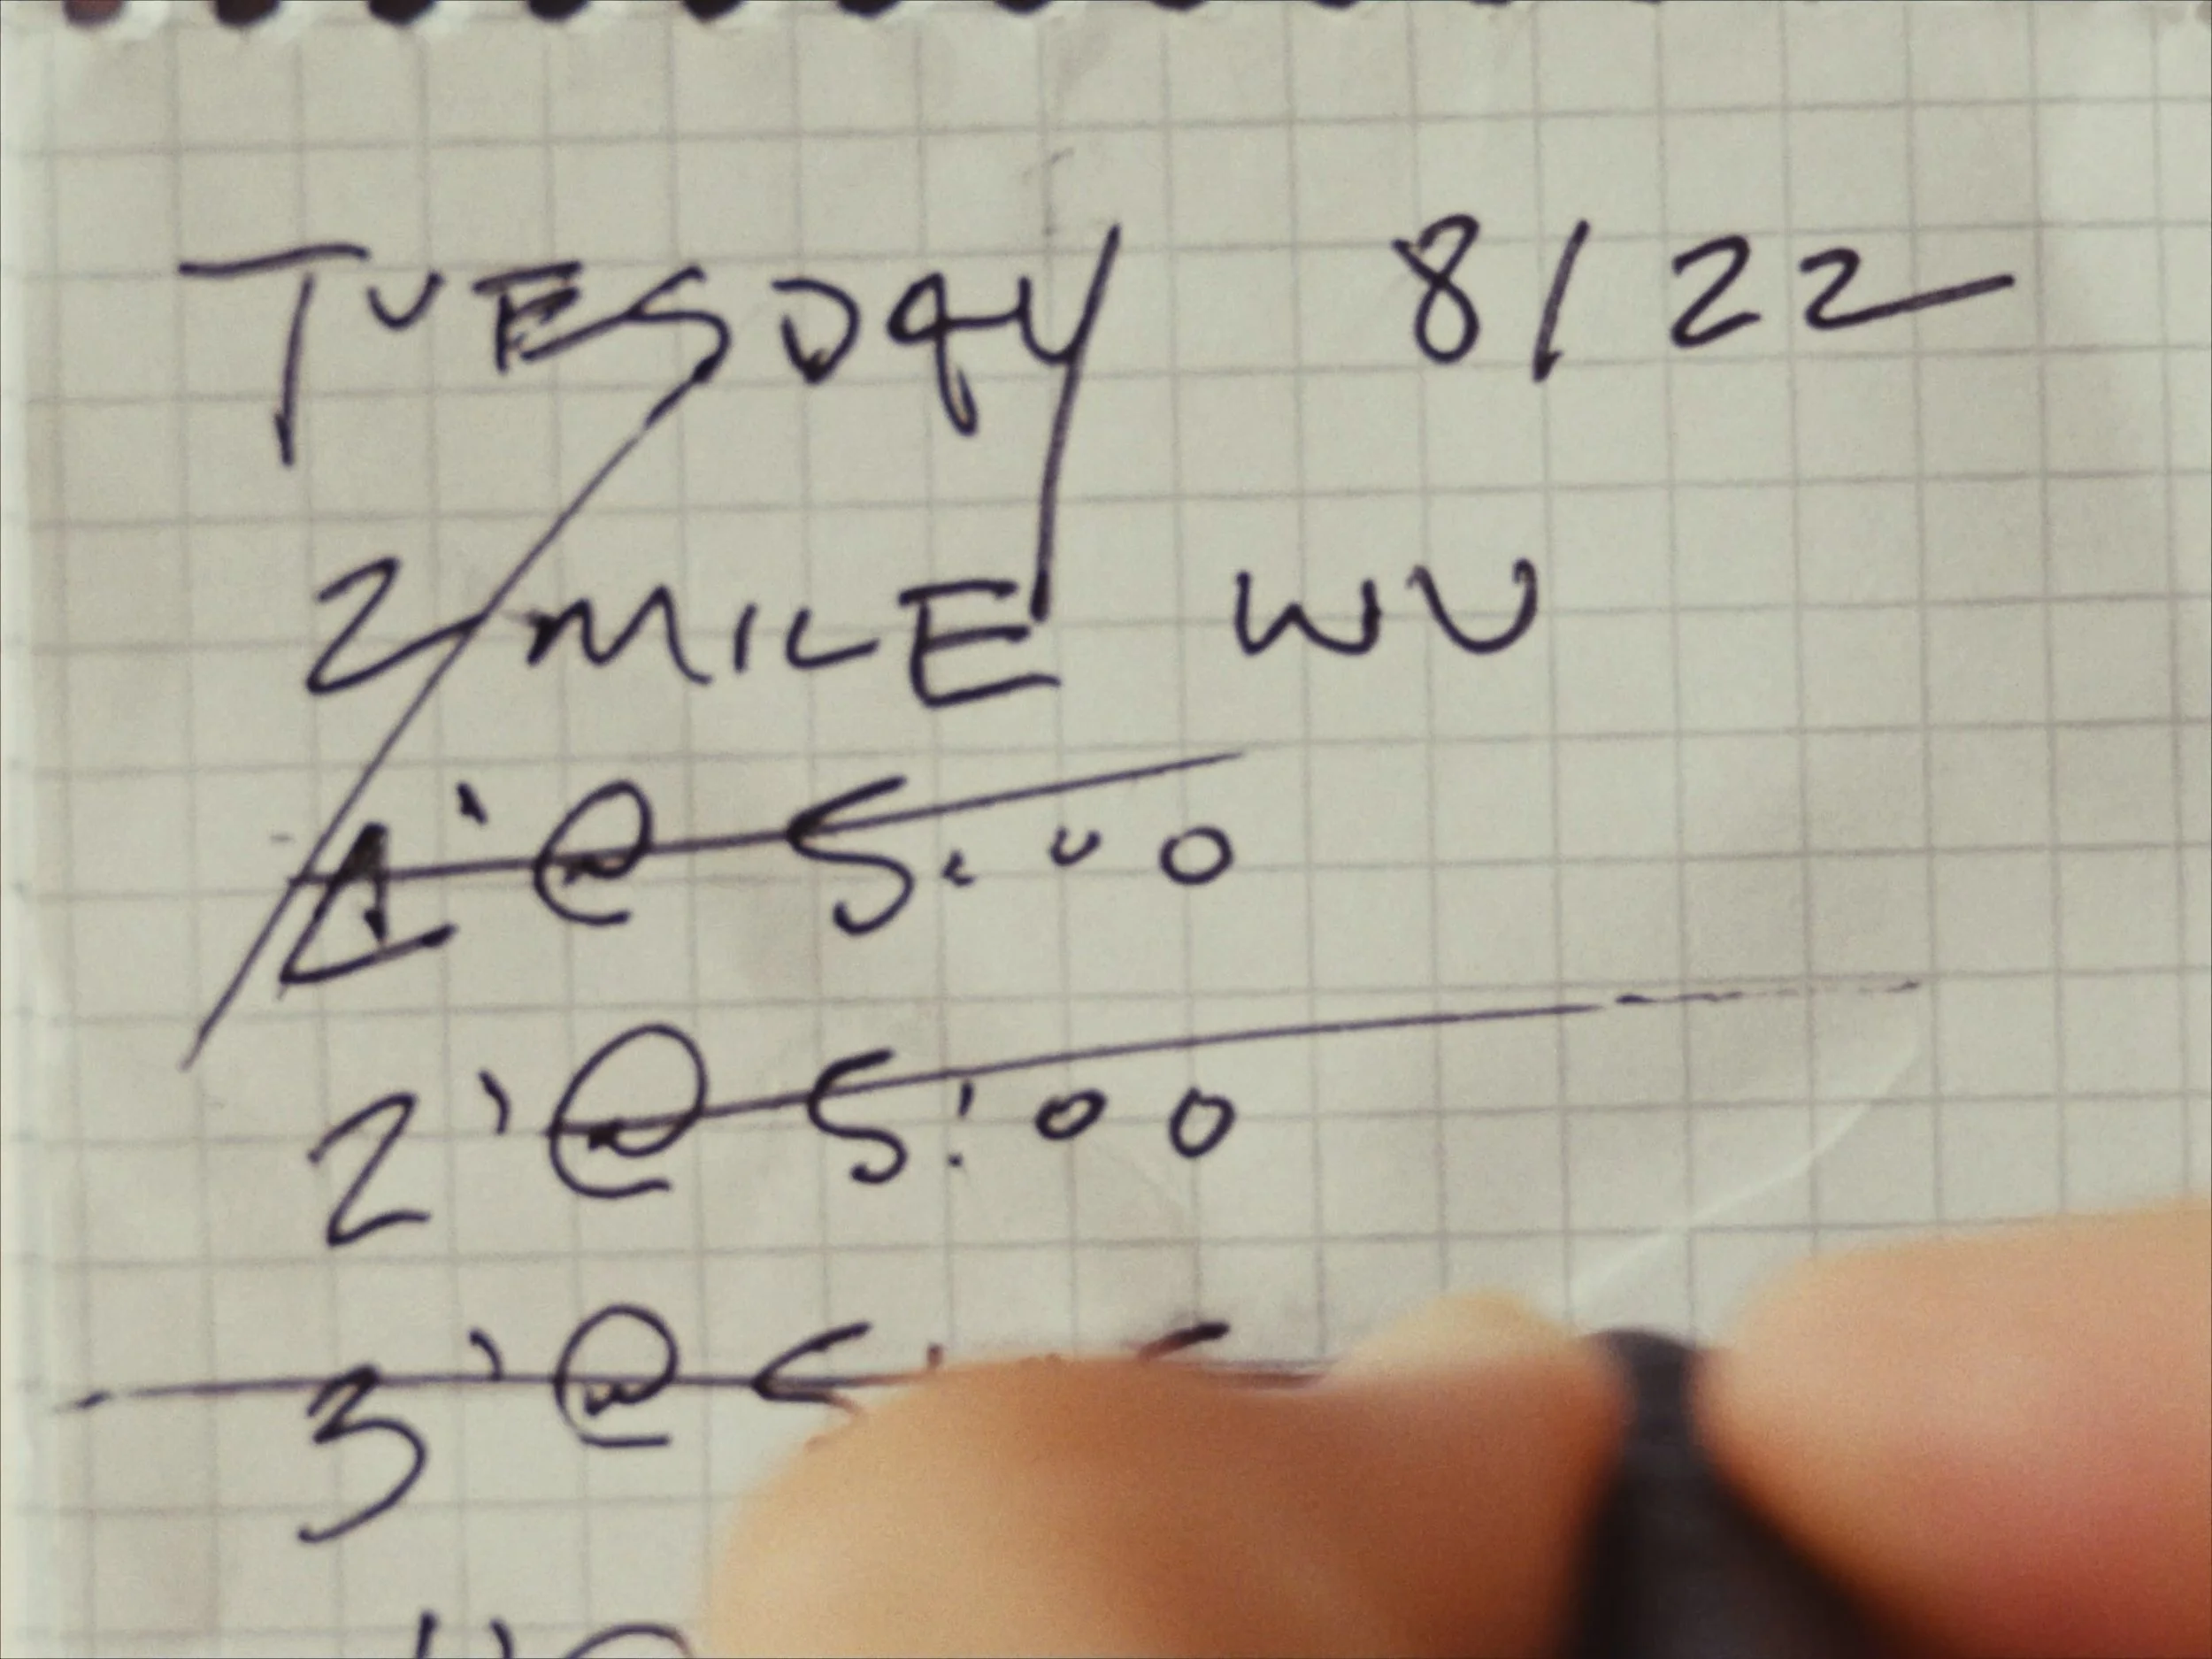 TUESDAY 8/22
2 MILE WU
1' @ 5:00
2' @ 5:00
3' @